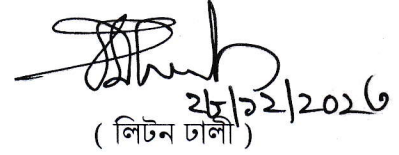 ২৮/১২/২০২৩
( লিটন ঢালী )